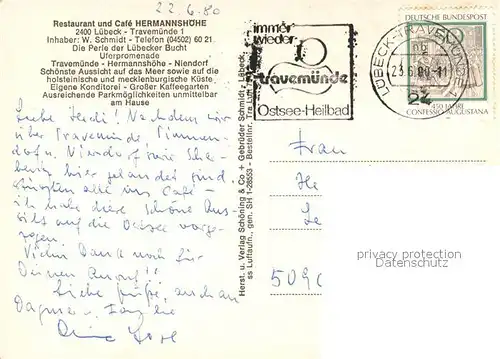 22.6.80
Restaurant und Café HERMANNSHÖHE
2400 Lübeck - Travemünde 1
Inhaber: W. Schmidt - Telefon (04502) 60 21
Die Perle der Lübecker Bucht
Uferpromenade
Travemünde - Hermannshöhe - Niendorf
Schönste Aussicht auf das Meer sowie auf die
holsteinische und mecklenburgische Küste.
Eigene Konditorei - Großer Kaffeegarten
Ausreichende Parkmöglichkeiten unmittelbar
am Hause
Liebe Nachdem wir
über Travemünde
Niendorf
hier gelandet sind
alle ins Café -
ich habe diese schöne Aus-
sicht auf die Ostsee vorge-
zogen.
Vielen Dank noch für
Deinen Anruf!!
Liebe Grüße, auch an
Dagmar
Herst. u. Verlag Schöning & Co + Gebrüder Schmidt - Lübeck
ss Luftaufn., gen. SH 1-28553 - Bestellnr. Tra Luft
immer
wieder
travemünde
Ostsee-Heilbad
LÜBECK-TRAVEMÜNDE 1
23.6.80-11
24
DEUTSCHE BUNDESPOST
450 JAHRE
CONFESSIO AUGUSTANA
Frau
He
5090
privacy protection
Datenschutz